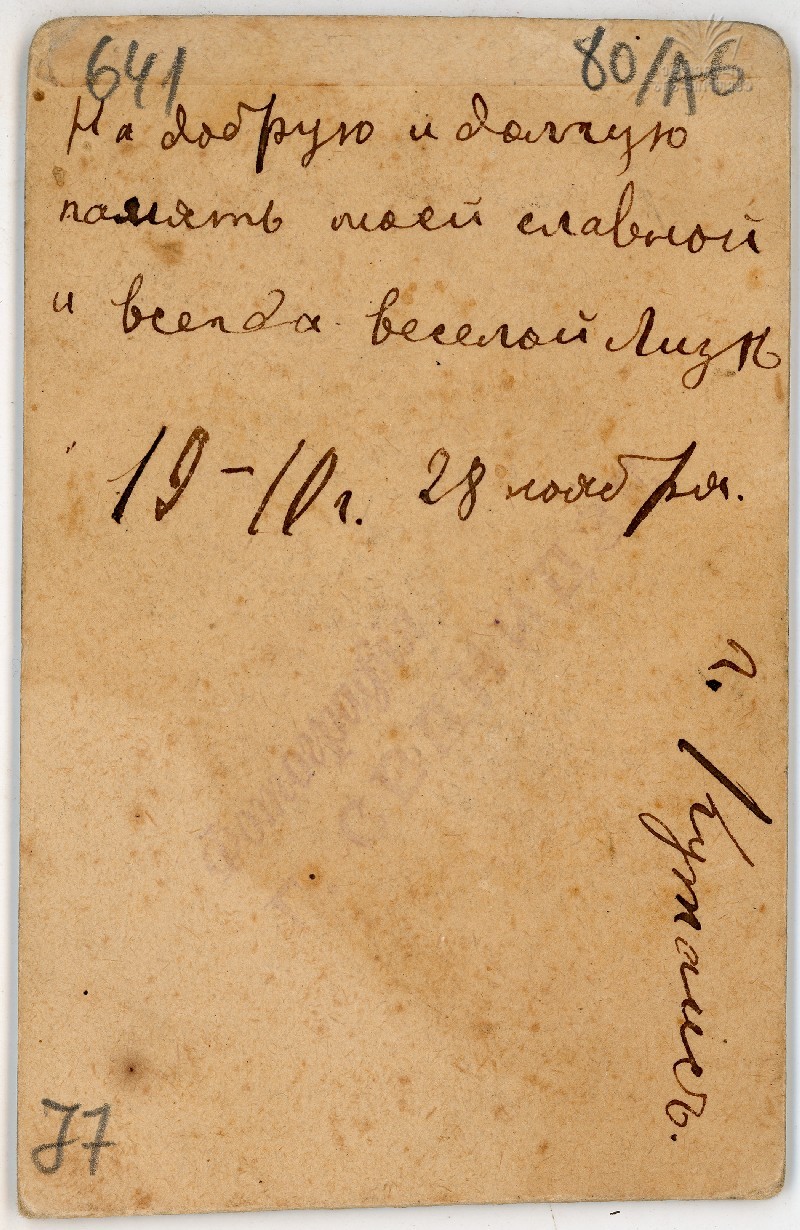 641
80/А6
На добрую и долгую
память моей славной
и всегда веселой Лизѣ
19-10 г. 28 ноября.
г. Кутаисъ.
77